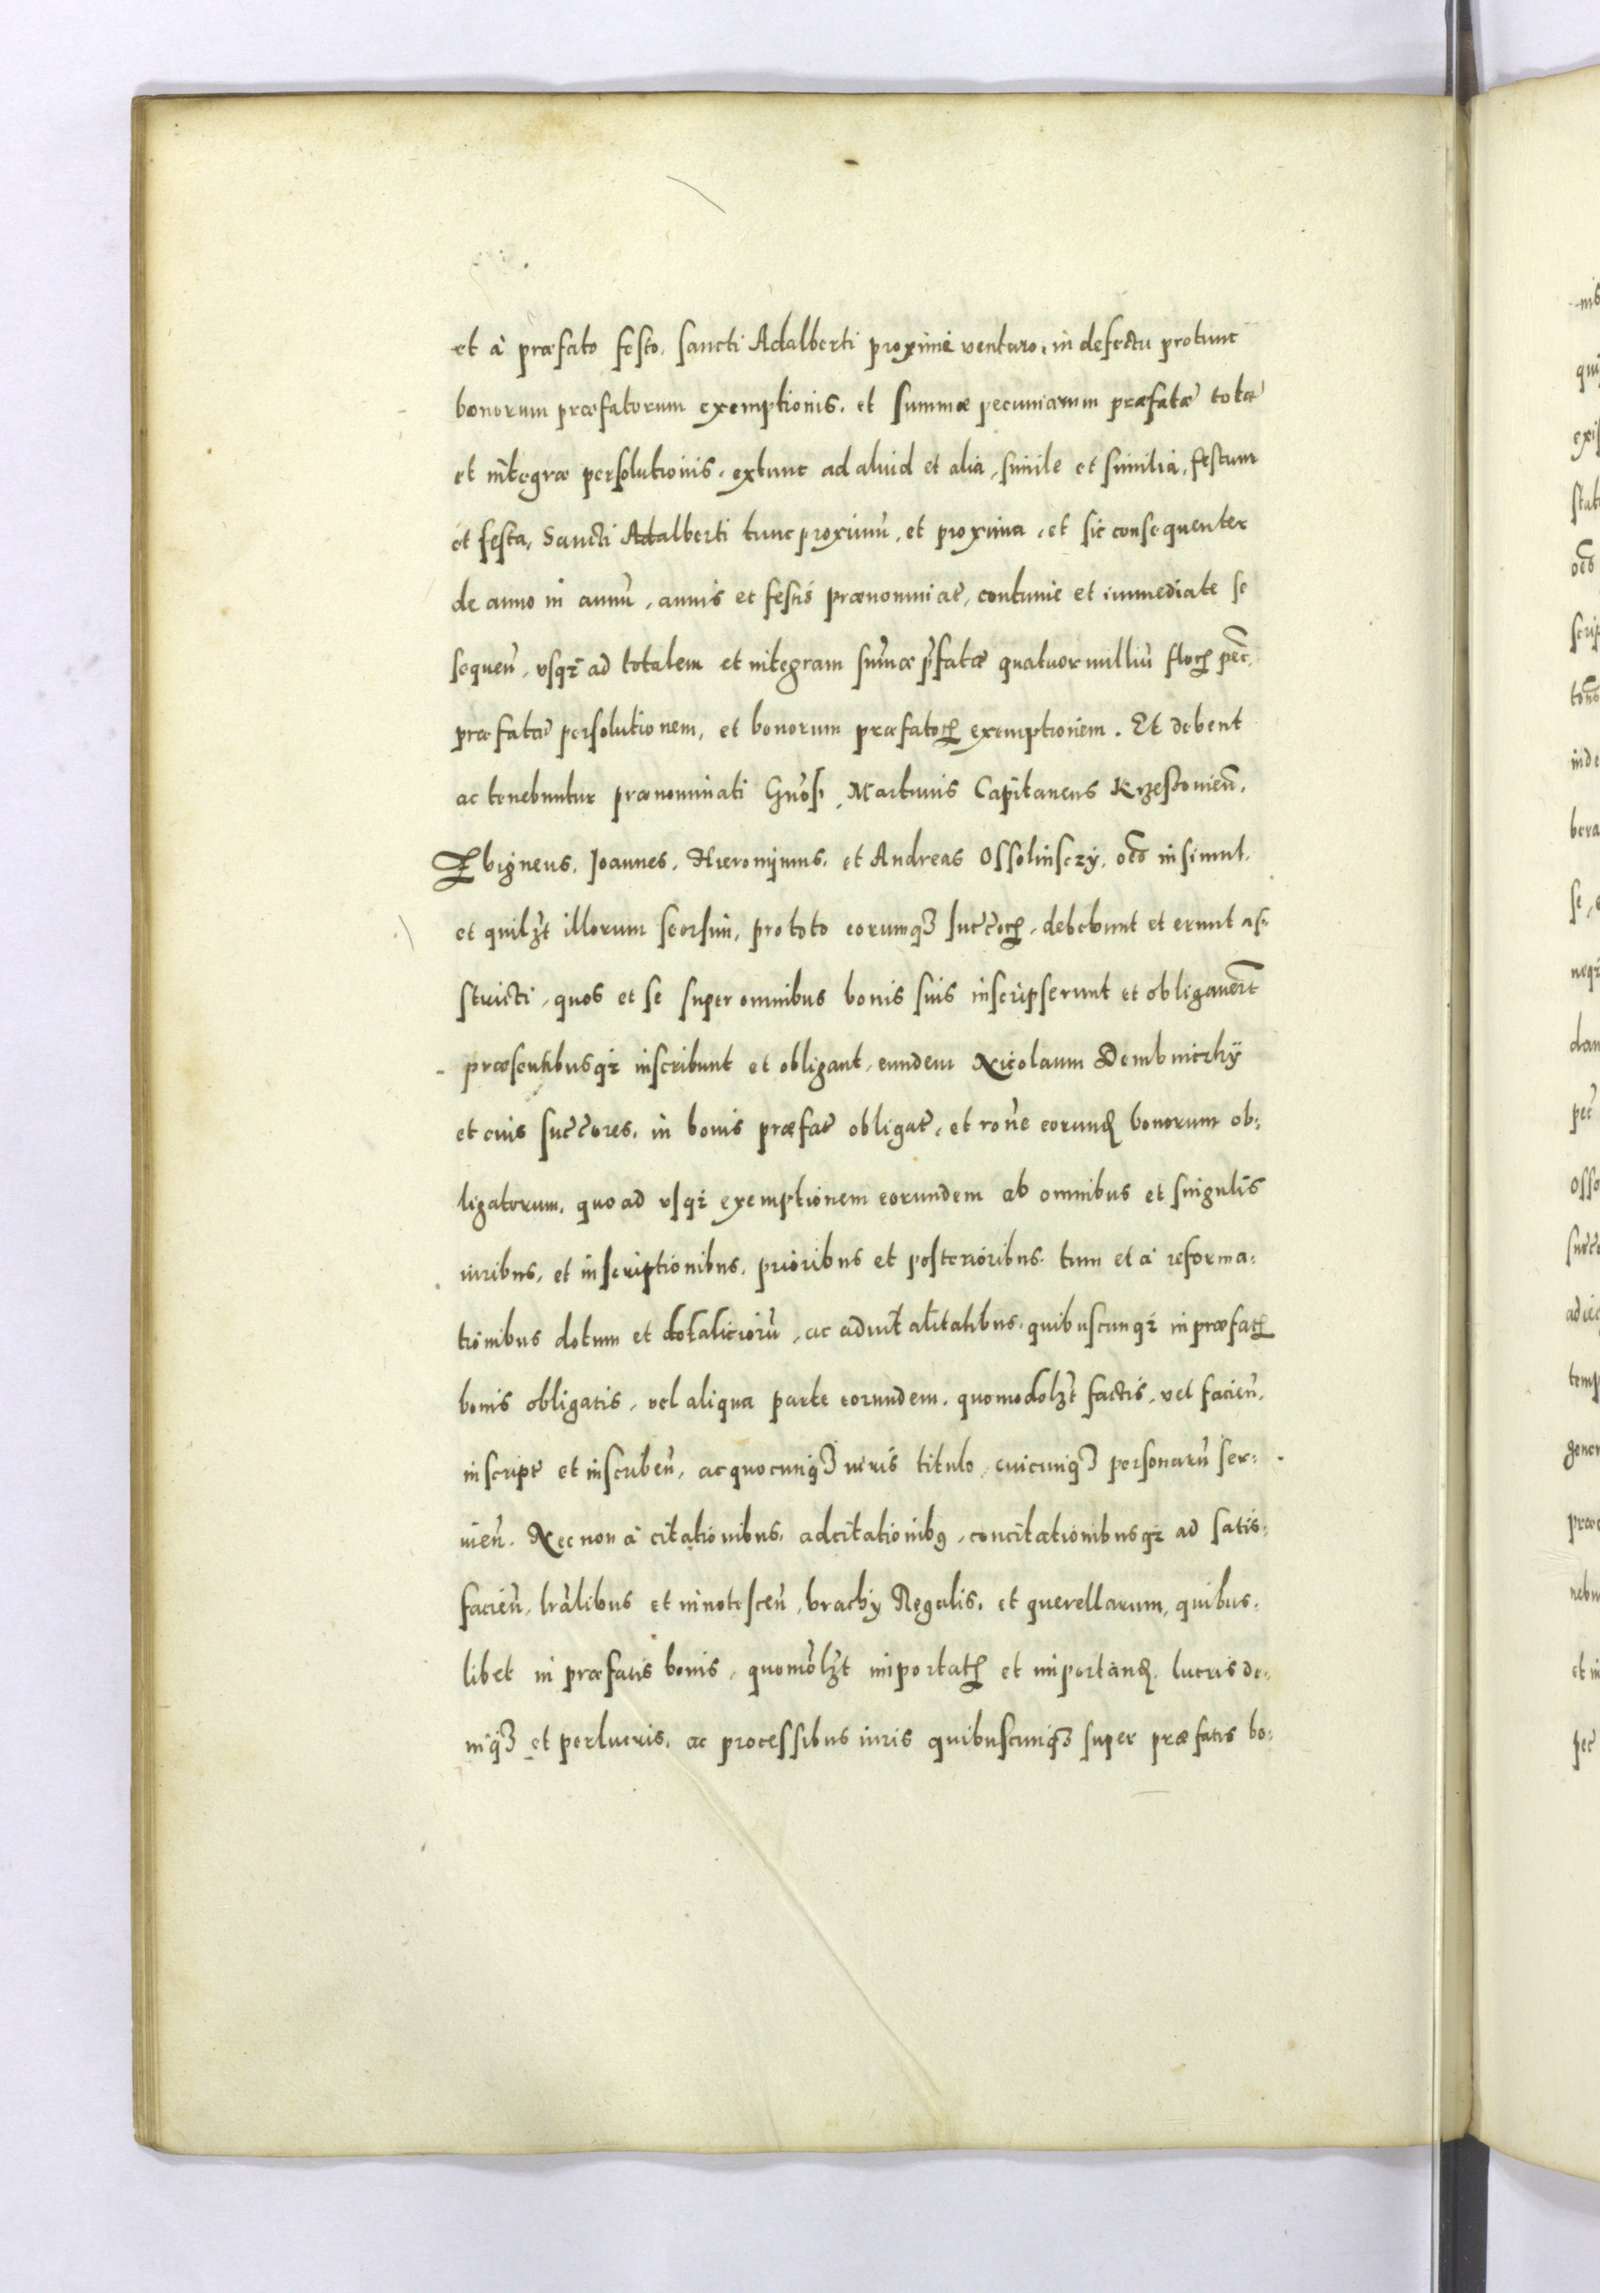 et à præfato festo, sancti Adalberti proximè venturo, in defectu protunc
bonorum præfatorum exemptionis, et summæ pecuniarum præfatæ totæ
et integræ persolutionis, extunc ad aliud et alia, simile et similia, festum
et festa, Sancti Adalberti tunc proximū, et proxima, et sic consequenter
de anno in annū, annis et festis prænominat̄, continuè et immediate se
sequeñ, vsqȝ ad totalem et integram sum̄æ p̄fatæ quatuor milliū floꝝ pec̄,
præfatæ persolutionem, et bonorum præfatoꝝ exemptionem. Et debent
ac tenebuntur prænominati Gn̄osi, Martinus Capitaneus Krzeszovien̄,
Zbigneus, Ioannes, Hieronimus, et Andreas Ossolinsczÿ, oēs insimul,
et quilꝫt illorum seorsim, pro toto eorumqꝫ succ̄oꝝ, debebunt et erunt as-
stricti, quos et se super omnibus bonis suis inscripserunt et obligauer̄t
præsentibusqȝ inscribunt et obligant, eundem Nicolaum Dembniczkÿ
et eius succ̄ores, in bonis præfat̄ obligat̄, et ro̅ne eorund̄ bonorum ob-
ligatorum, quo ad vsqȝ exemptionem eorundem ab omnibus et singulis
iuribus, et inscriptionibus, prioribus et posterioribus, tum et à reforma-
tionibus dotum et dotaliciorū, ac aduit̄alitatibus, quibuscunqȝ in præfat̄
bonis obligatis, vel aliqua parte eorundem, quomodolꝫt factis, vel facien̄,
inscript̄ et inscriben̄, ac quocunqꝫ iuris titulo, cuicunqꝫ personarū ser-
uien̄. Nec non à citationibus, adcitationibꝰ, concitationibusqȝ ad satis-
facien̄, lr̄alibus et innotescen̄, brachÿ Regalis, et querellarum, quibus-
libet in præfatis bonis, quomōlꝫt importat̄ et importand̄, lucris de-
niqꝫ et perlucris, ac processibus iuris quibuscunqꝫ super præfatis bo-